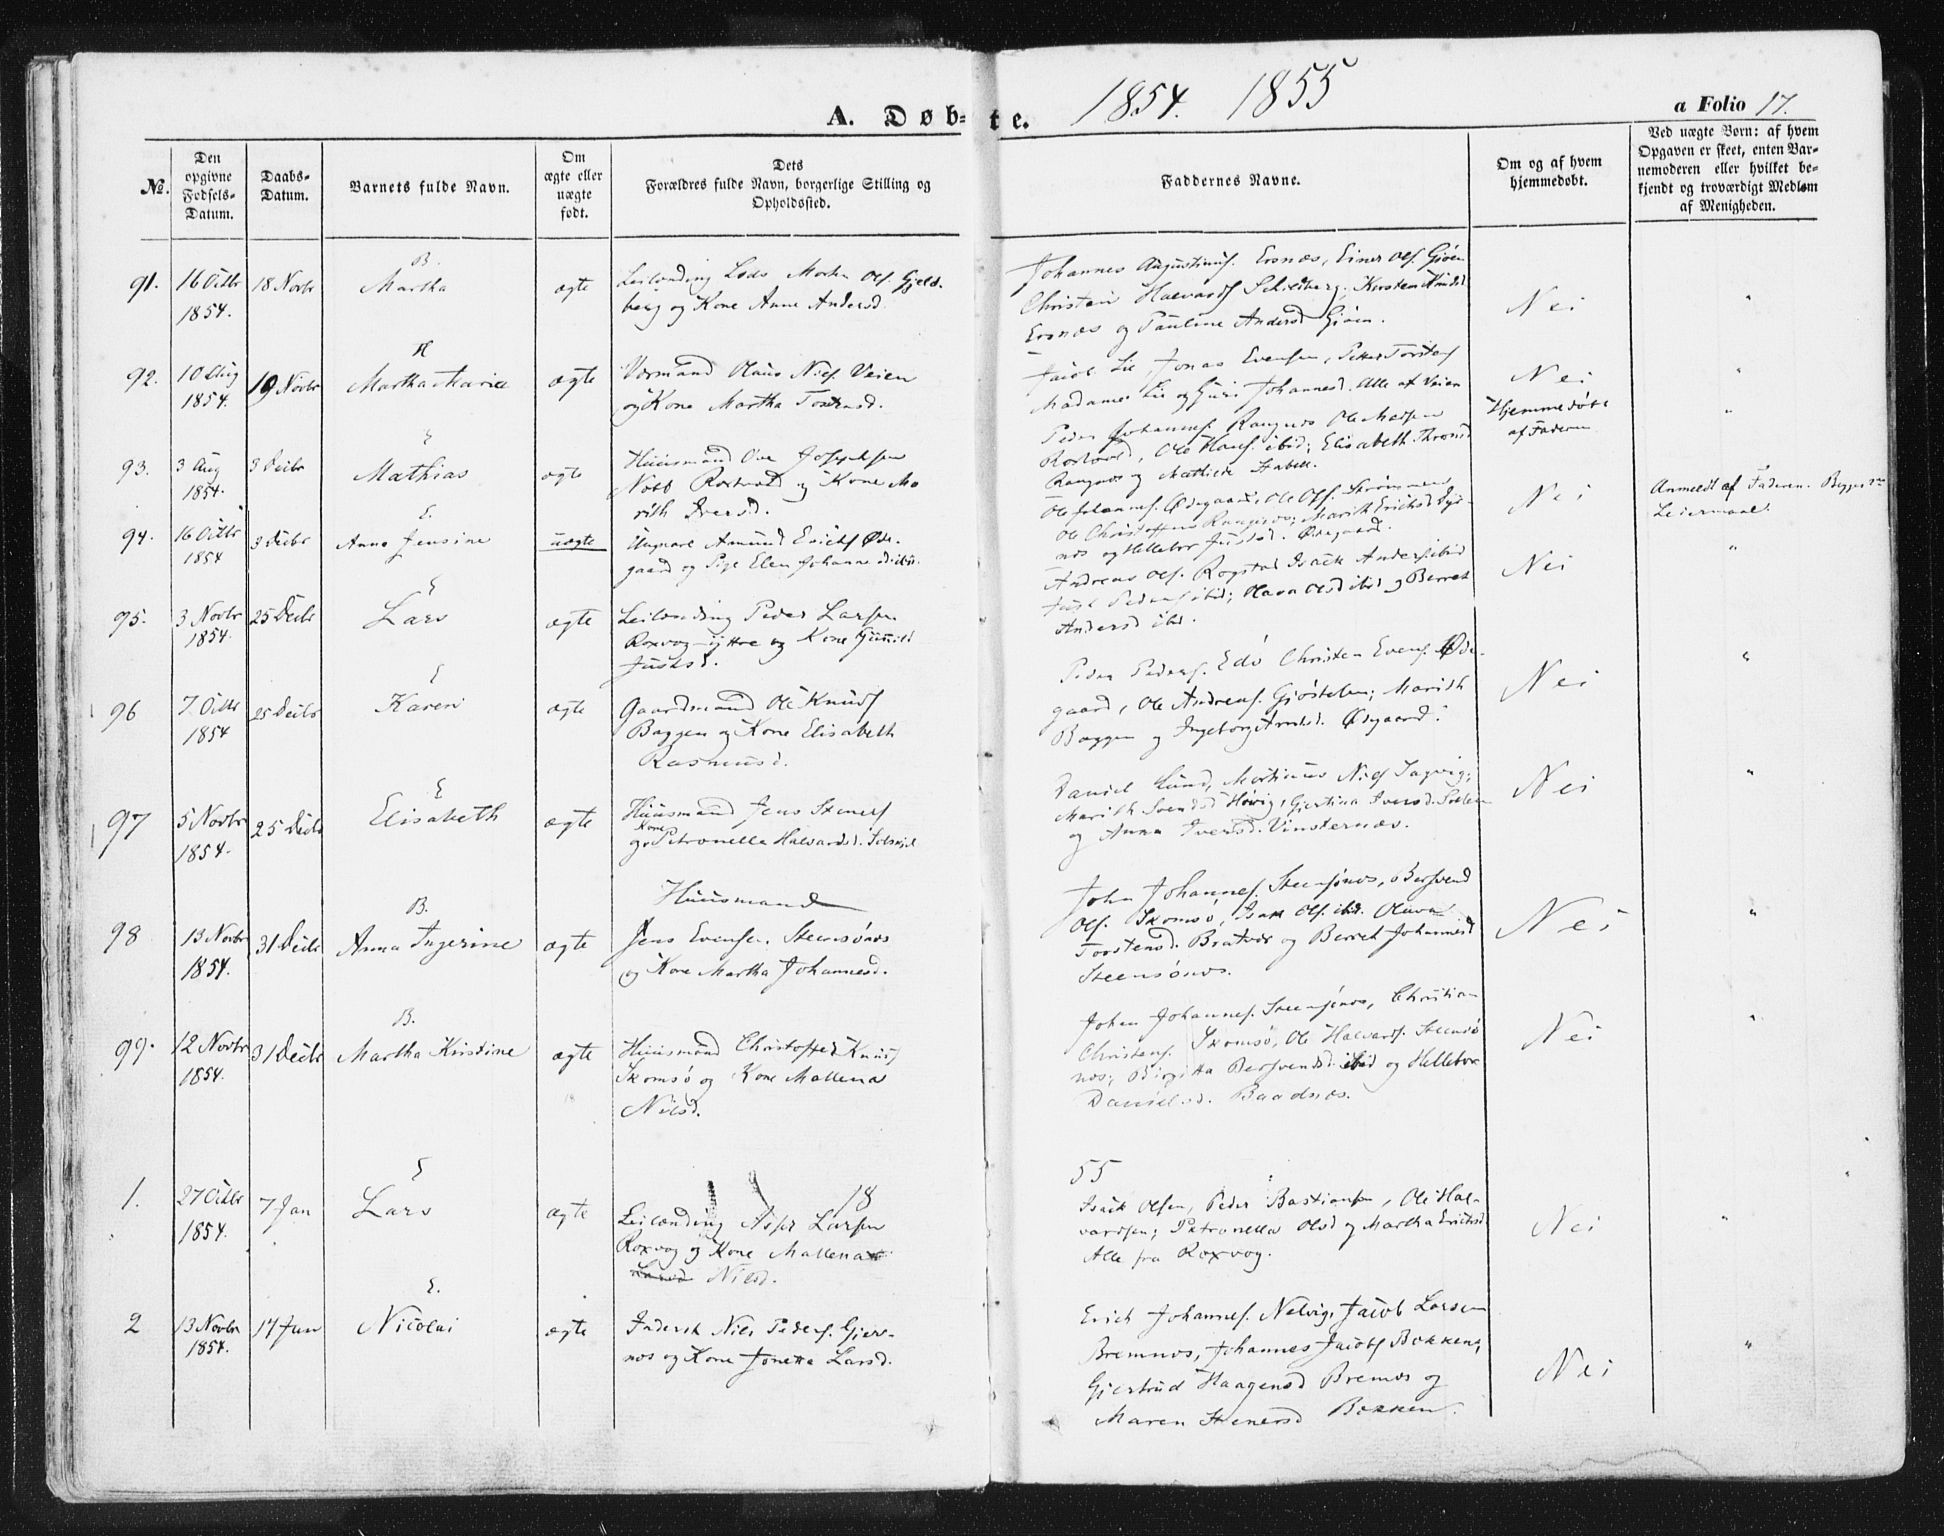 A. Døbte. 1854. 1855
a Folio 17.
No.
Den opgivne Fødsels-Datum.
Daabs-Datum.
Barnets fulde Navn.
Om ægte eller uægte født.
Dets Forældres fulde Navn, borgerlige Stilling og Opholdssted.
Faddernes Navne.
Om og af hvem hjemmedøbt.
Ved uægte Børn: af hvem Opgaven er skeet, enten Barnemoderen eller hvilket bekjendt og troværdigt Medlem af Menigheden.
91. 16 Octbr 1854. 18 Novbr
B.
Martha
ægte
Leilænding Lods Morten Ols. Gjeld-
berg og Kone Anne Andersd
Johannes Augustinus. Ersnæs, Einer Ols. Gjøen
Christen Halvords Schedberg, Kirsten Knudsd
Ersnæs og Pauline Andersd Gjøen.
Nei
"
92. 10 Aug 1854. 19 Novbr
K
Martha Marie
ægte
Olaus Niels. Veien
og Kone Martha
Jacob Lie Jonas Evensen, Petter Torstens
Madame Lie og Guri Johannesd. Alle af Veien
Nei
"
93. 3 Aug 1854. 3 Decbr
E
Mathias
ægte
Huusmand Ove Josephsen
Nobb Roxvaag og Kone Ma-
rith Iversd.
Peder Johannes. Rangnæs Ole Madsen
Ole Hans. ibid; Elisabeth Thronsd
Rangnæs og Mathilde Stabell.
Hjemmedøbt
af Faderen
"
94. 16 Octbr 1854 3 Decbr
E.
Anne Jensine
uægte
Ungkarl Amund Erichs Øde-
gaard og Pige Elen Johannesd ibid.
Ole Johannes. Ødegaard, Ole Ols. Strømmen
Ole Christoffersen Rangnæs; Marith Erichsd
nes og Hellebor Justsd. Ødegaard.
Nei
Anmeldt af Faderen. Begges 1ste
Leiermaal.
95. 3 Novbr 1854. 25 Decbr
E
Lars
ægte
Leilænding Peder Larsen
Roxvog-yttre og Kone Gunild
Justsd.
Andreas Ols. Rogstad Isack Anders. ibid
Just Peders. ibid; Olava Olsd ibid og Berret
Andersd ibid.
Nei
"
96 7. Octbr 1854 25 Decbr
E
Karen
ægte
Gaardmand Ole Knuds
Baggen og Kone Elisabeth
Rasmusd.
Peder Peders. Edø Christen Evens. Øde-
gaard, Ole Andreas. Gjøstelen; Marith
Baggen og Ingeborg Arntsd. Ødegaard.
Nei
"
97 5 Novbr 1854. 25 Decbr
E
Elisabeth
ægte
Huusmand Jens Steners
og Kone Petronella Halvardsd.
Daniel Lund, Martinus Niels
Marith Svendsd Høvig, Gjertina Iversd.
og Anna Iversd. Vinsternæs.
Nei
"
98 13 Novbr 1854. 31 Decbr
B.
Anna Ingerine
ægte
Huusmand
Jens Evensen. Steensønæs
og Kone Martha Johannesd.
John Johannes. Steensønæs, Bersvend
Ols. Skomsø, Isak Ols. ibid. Olava
Torstensd. Bratvær og Berret Johannesd
Steensønæs.
Nei
"
99. 12 Novbr 1854. 31 Decbr
B.
Martha Kirstine
ægte
Huusmand Christoffer Knuds
Skomsø og Kone Mallena
Nilsd.
John Johannes. Steensønæs, Christian
Christens. Skomsø, Ole Halvards. Steensø
næs; Birgitta Bersvendsd. ibid og Hellebor
Danielsd. Baadnæs.
Nei
"
18 55
1. 27 Octbr 1854. 7 Jan
E
Lars
ægte
Leilænding Larsen
Roxvog og Kone Mallena
Larsd Nilsd.
Isack Olsen, Peder Bastiansen, Ole Hal-
vardsen; Petronella Olsd og Martha Erichsd
Alle fra Roxvog.
Nei
"
2 13 Novbr 1854. 17 Jan
E.
Nicolai
ægte
Inderst Nils Peders. Gjers-
nos og Kone Jonetta Larsd.
Erich Johannes. Nelvig, Jacob Larsen
Bremnæs, Johannes Jacobs Bekken,
Gjertrud Haagensd Bremnæs og
Maren Stenersd Bekken.
Nei
"